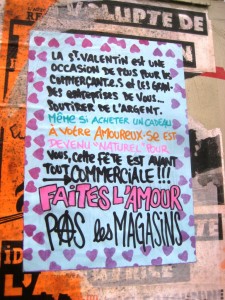 VOLUPTE DE
LA St. VALENTIN est UNE
OCCASION DE PLUS POUR les
COMMERÇANT.E.S ET LES GRAN-
DES ENTREPRISES DE VOUS...
SOUTIRER DE L'ARGENT.
MÊME Si ACHETER UN CADEAU
À VÔTRE AMOUREUX·SE EST
DEVENU "NATUREL" POUR
VOUS, CETTE FÊTE EST AVANT
TOUT COMMERCIALE!!!
FAITES L'AMOUR
PAS les MAGASINS